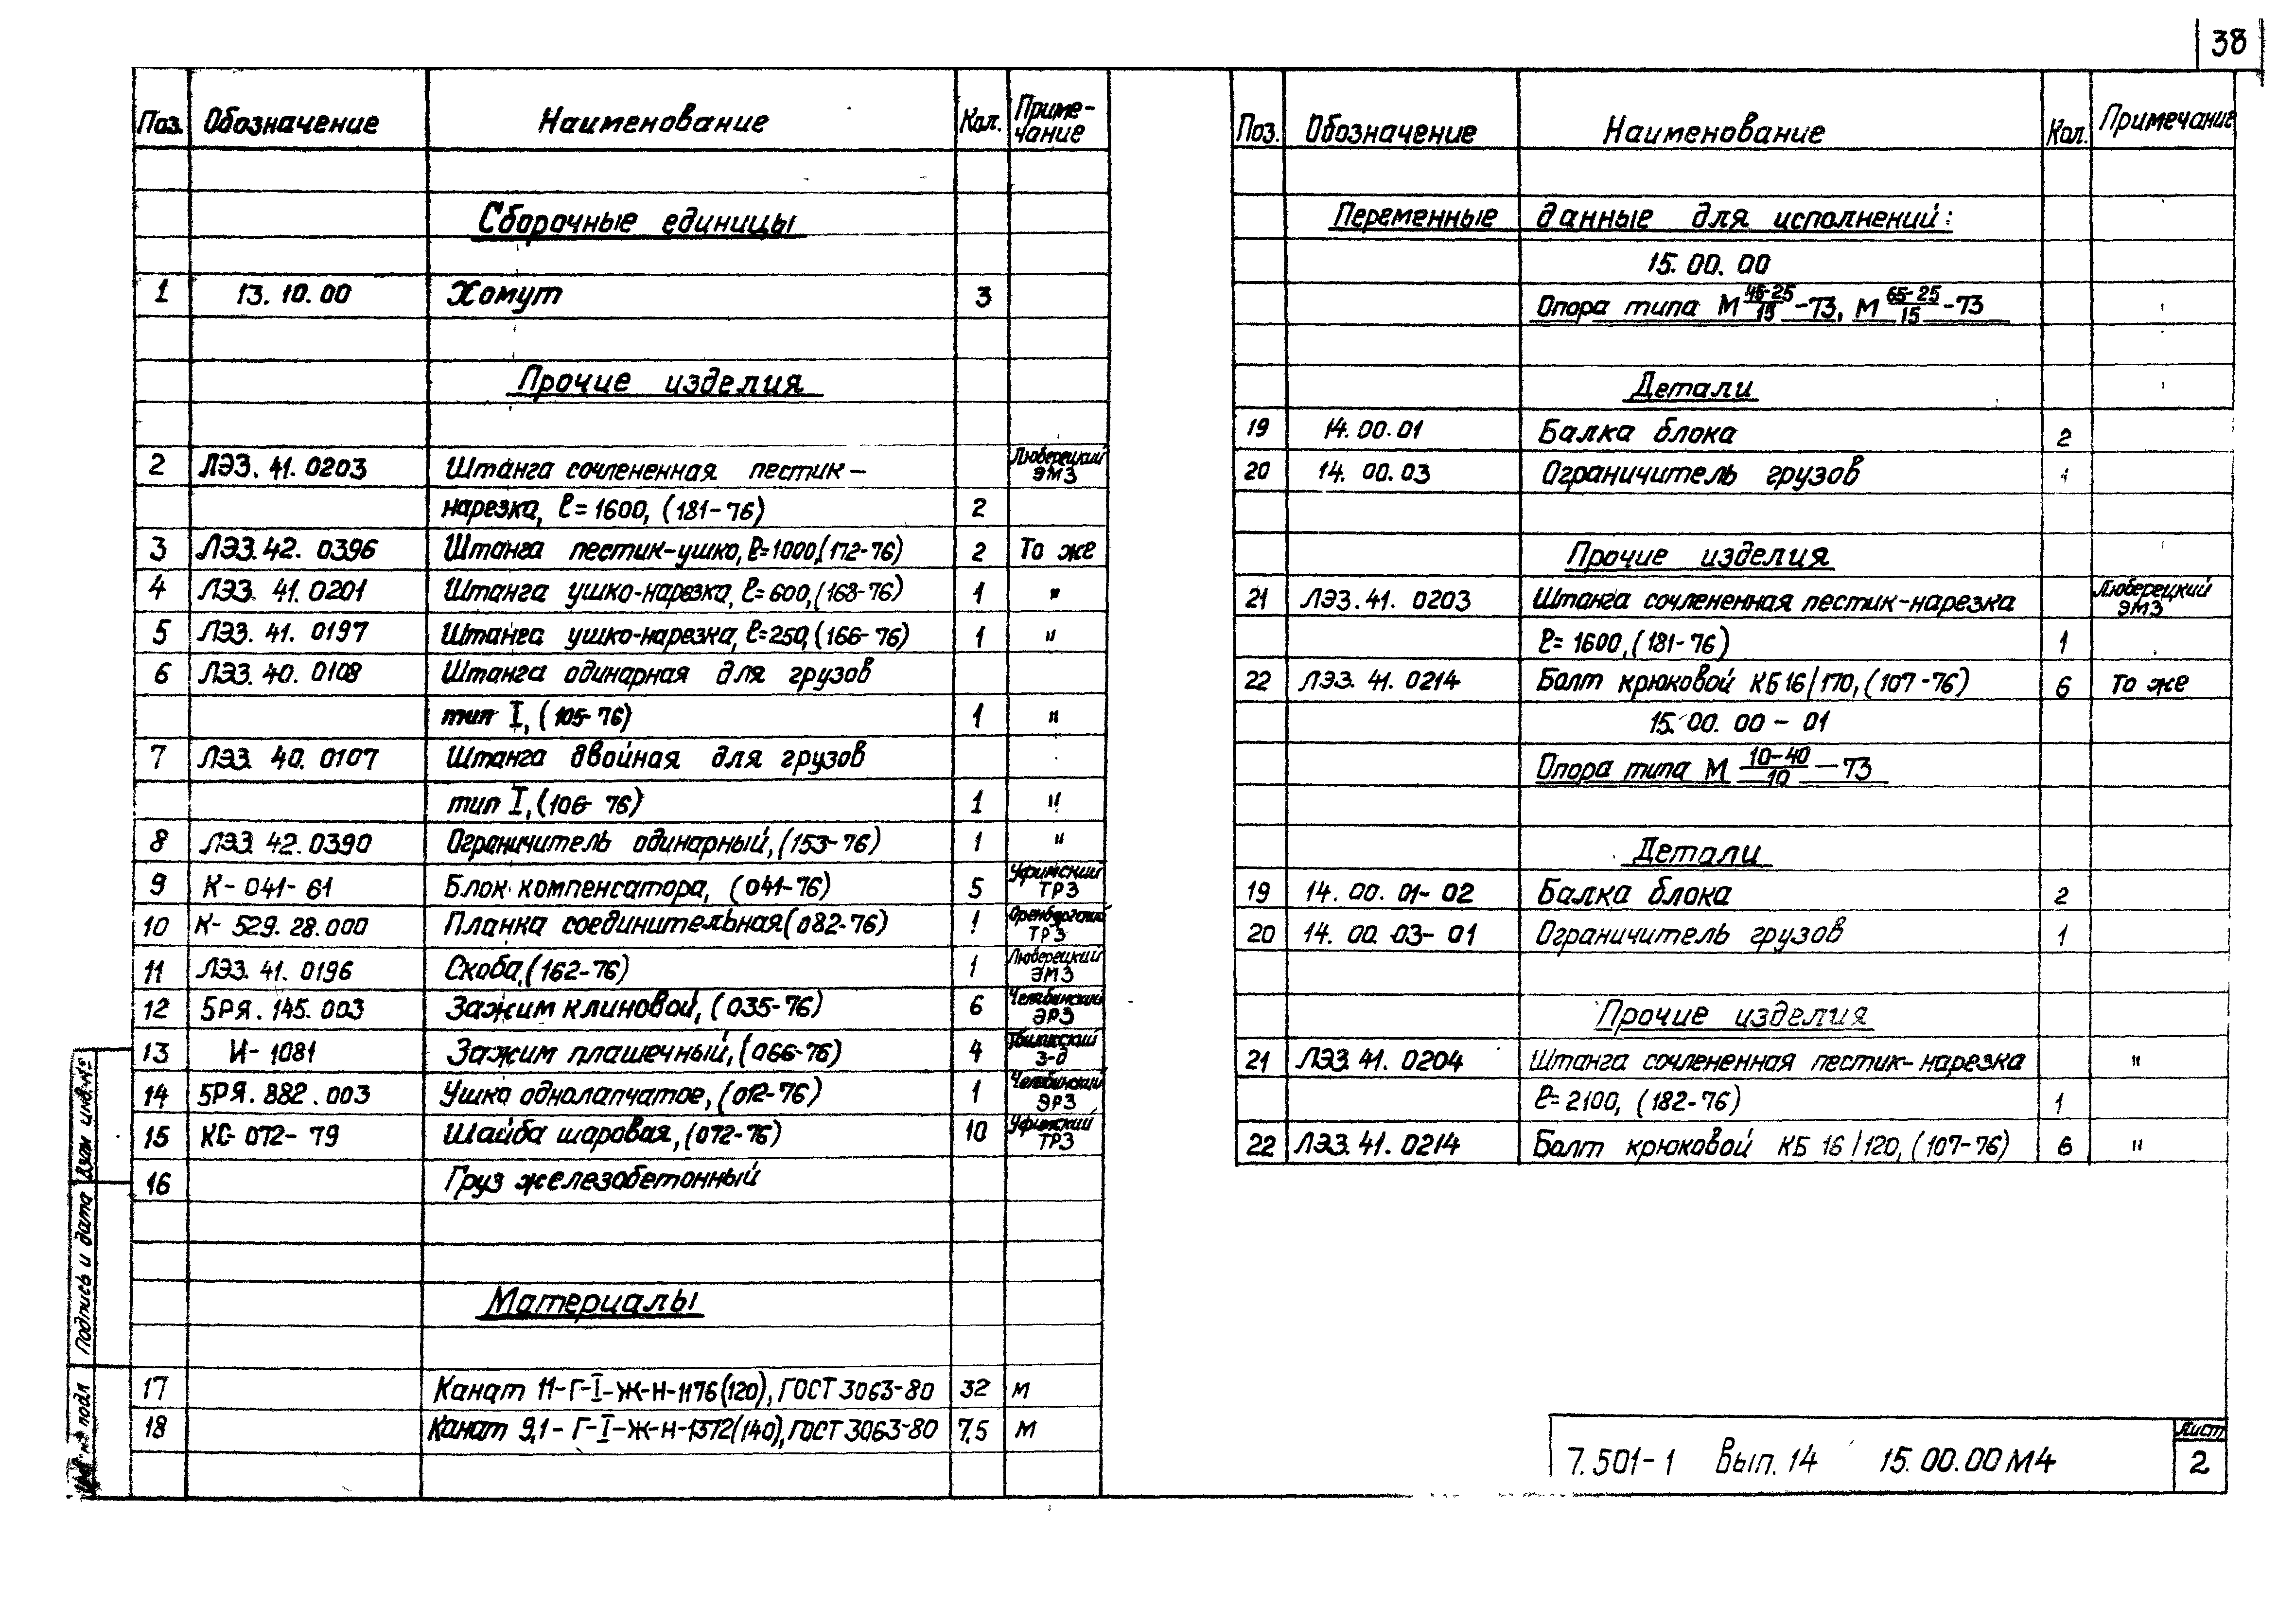 38
Поз. Обозначение Наименование Кол. Приме-
чание
Сборочные единицы
1 13.10.00 Хомут 3
Прочие изделия
2 ЛЭЗ.41.0203 Штанга сочлененная пестик- Люберецкий ЭМЗ
нарезка, ℓ=1600, (181-76) 2
3 ЛЭЗ.42.0396 Штанга пестик-ушко, ℓ=1000,(172-76) 2 То же
4 ЛЭЗ.41.0201 Штанга ушко-нарезка, ℓ=600,(168-76) 1 "
5 ЛЭЗ.41.0197 Штанга ушко-нарезка, ℓ=250,(166-76) 1 "
6 ЛЭЗ.40.0108 Штанга одинарная для грузов
тип I, (105-76) 1 "
7 ЛЭЗ.40.0107 Штанга двойная для грузов
тип I, (106-76) 1 "
8 ЛЭЗ.42.0390 Ограничитель одинарный, (153-76) 1 "
9 К-041-61 Блок компенсатора, (041-76) 5 Уфимский ТРЗ
10 К-529.28.000 Планка соединительная(082-76) 1 Оренбургский ТРЗ
11 ЛЭЗ.41.0196 Скоба,(162-76) 1 Люберецкий ЭМЗ
12 5РЯ.145.003 Зажим клиновой, (035-76) 6 Челябинский ЭРЗ
13 И-1081 Зажим плашечный, (066-76) 4 Тбилисский з-д
14 5РЯ.882.003 Ушко однолапчатое, (012-76) 1 Челябинский ЭРЗ
15 КС-072-79 Шайба шаровая, (072-76) 10 Уфимский ТРЗ
16 Груз железобетонный
Материалы
17 Канат 11-Г-I-Ж-Н-1176(120), ГОСТ 3063-80 32 м
18 Канат 9,1-Г-I-Ж-Н-1372(140), ГОСТ 3063-80 7,5 м
Поз. Обозначение Наименование Кол. Примечание
Переменные данные для исполнений:
15.00.00
Опора типа М 45-25/15 -73, М 65-25/15 -73
Детали
19 14.00.01 Балка блока 2
20 14.00.03 Ограничитель грузов 1
Прочие изделия
21 ЛЭЗ.41.0203 Штанга сочлененная пестик-нарезка Люберецкий ЭМЗ
ℓ=1600,(181-76) 1
22 ЛЭЗ.41.0214 Болт крюковой КБ16/170,(107-76) 6 То же
15.00.00-01
Опора типа М 10-40/10 -73
Детали
19 14.00.01-02 Балка блока 2
20 14.00.03-01 Ограничитель грузов 1
Прочие изделия
21 ЛЭЗ.41.0204 Штанга сочлененная пестик-нарезка "
ℓ=2100, (182-76) 1
22 ЛЭЗ.41.0214 Болт крюковой КБ 16/120, (107-76) 6 "
Взам инв.№
Подпись и дата
Инв.№ подл
7.501-1 Вып.14 15.00.00М4
Лист
2